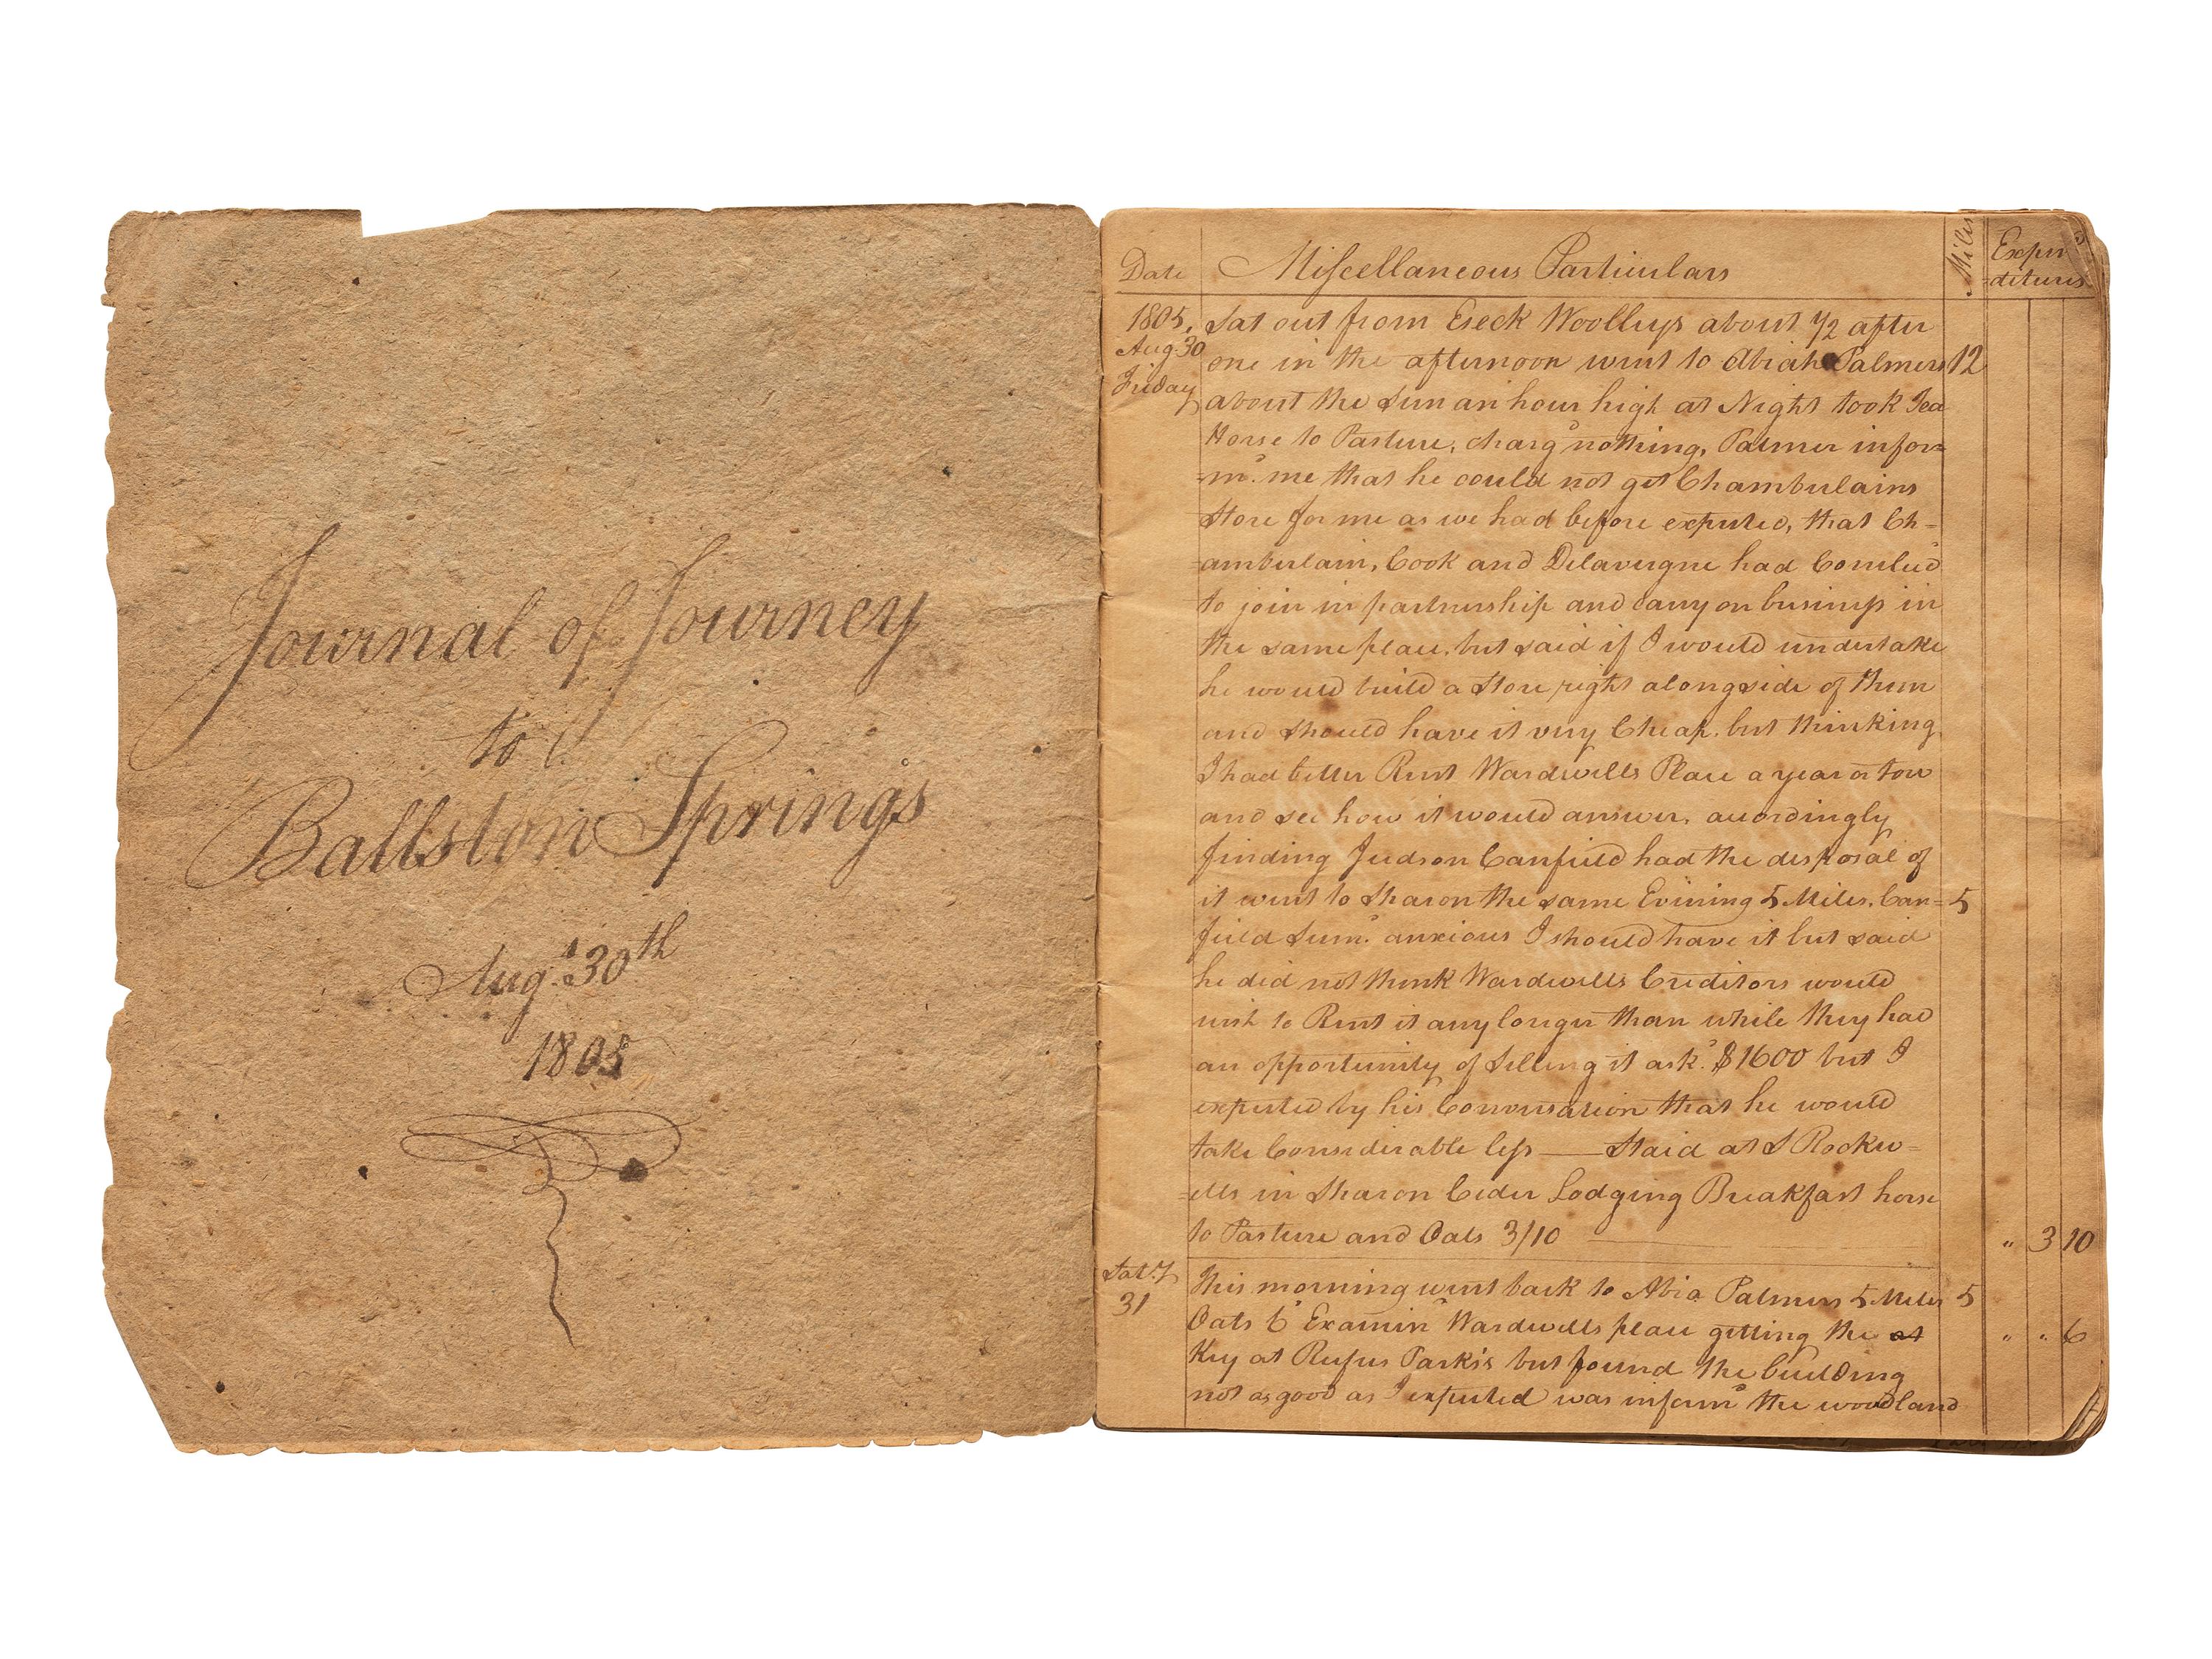 Journal of Journey
to
Ballston Springs
Augt. 30th
1805
Date Miscellaneous Particulars Miles Expen
=ditures
1805, Sat out from Eseck Woolleys about 1/2 after
Aug. 30 one in the afternoon went to Abiah Palmers 12
Friday about the Sun an hour high at Night took Tea
Horse to Pasture, chargd nothing, Palmer infor=
=md. me that he could not get Chamberlains
Store for me as we had before expected, that Ch=
=amberlain, Cook and Delavergne had Concludd
to join in partnership and carry on business in
the same place, but said if I would undertake
he would build a Store right alongside of them
and should have it very Cheap. but thinking
I had better Rent Wardwells Place a year or tow
and see how it would answer. accordingly
finding Judson Canfield had the disposal of
it went to Sharon the same Evining 5 Miles. Can= 5
field Semd. anxious I should have it but said
he did not think Wardwells Creditors would
wish to Rent it any longer than while they had
an opportunity of Selling it askd. $1600 but I
expected by his Conversation that he would
take Considerable less — Staid at S Rockw=
=ells in Sharon Cider Lodging Breakfast horse
to Pasture and Oats 3/10 " 3 10
Saty. This morning went back to Abia Palmers 5 Miles 5
31 Oats 6d Examind Wardwells place getting the at " " 6
Key at Rufus Parks's but found the building
not as good as I expected was informd the woodland